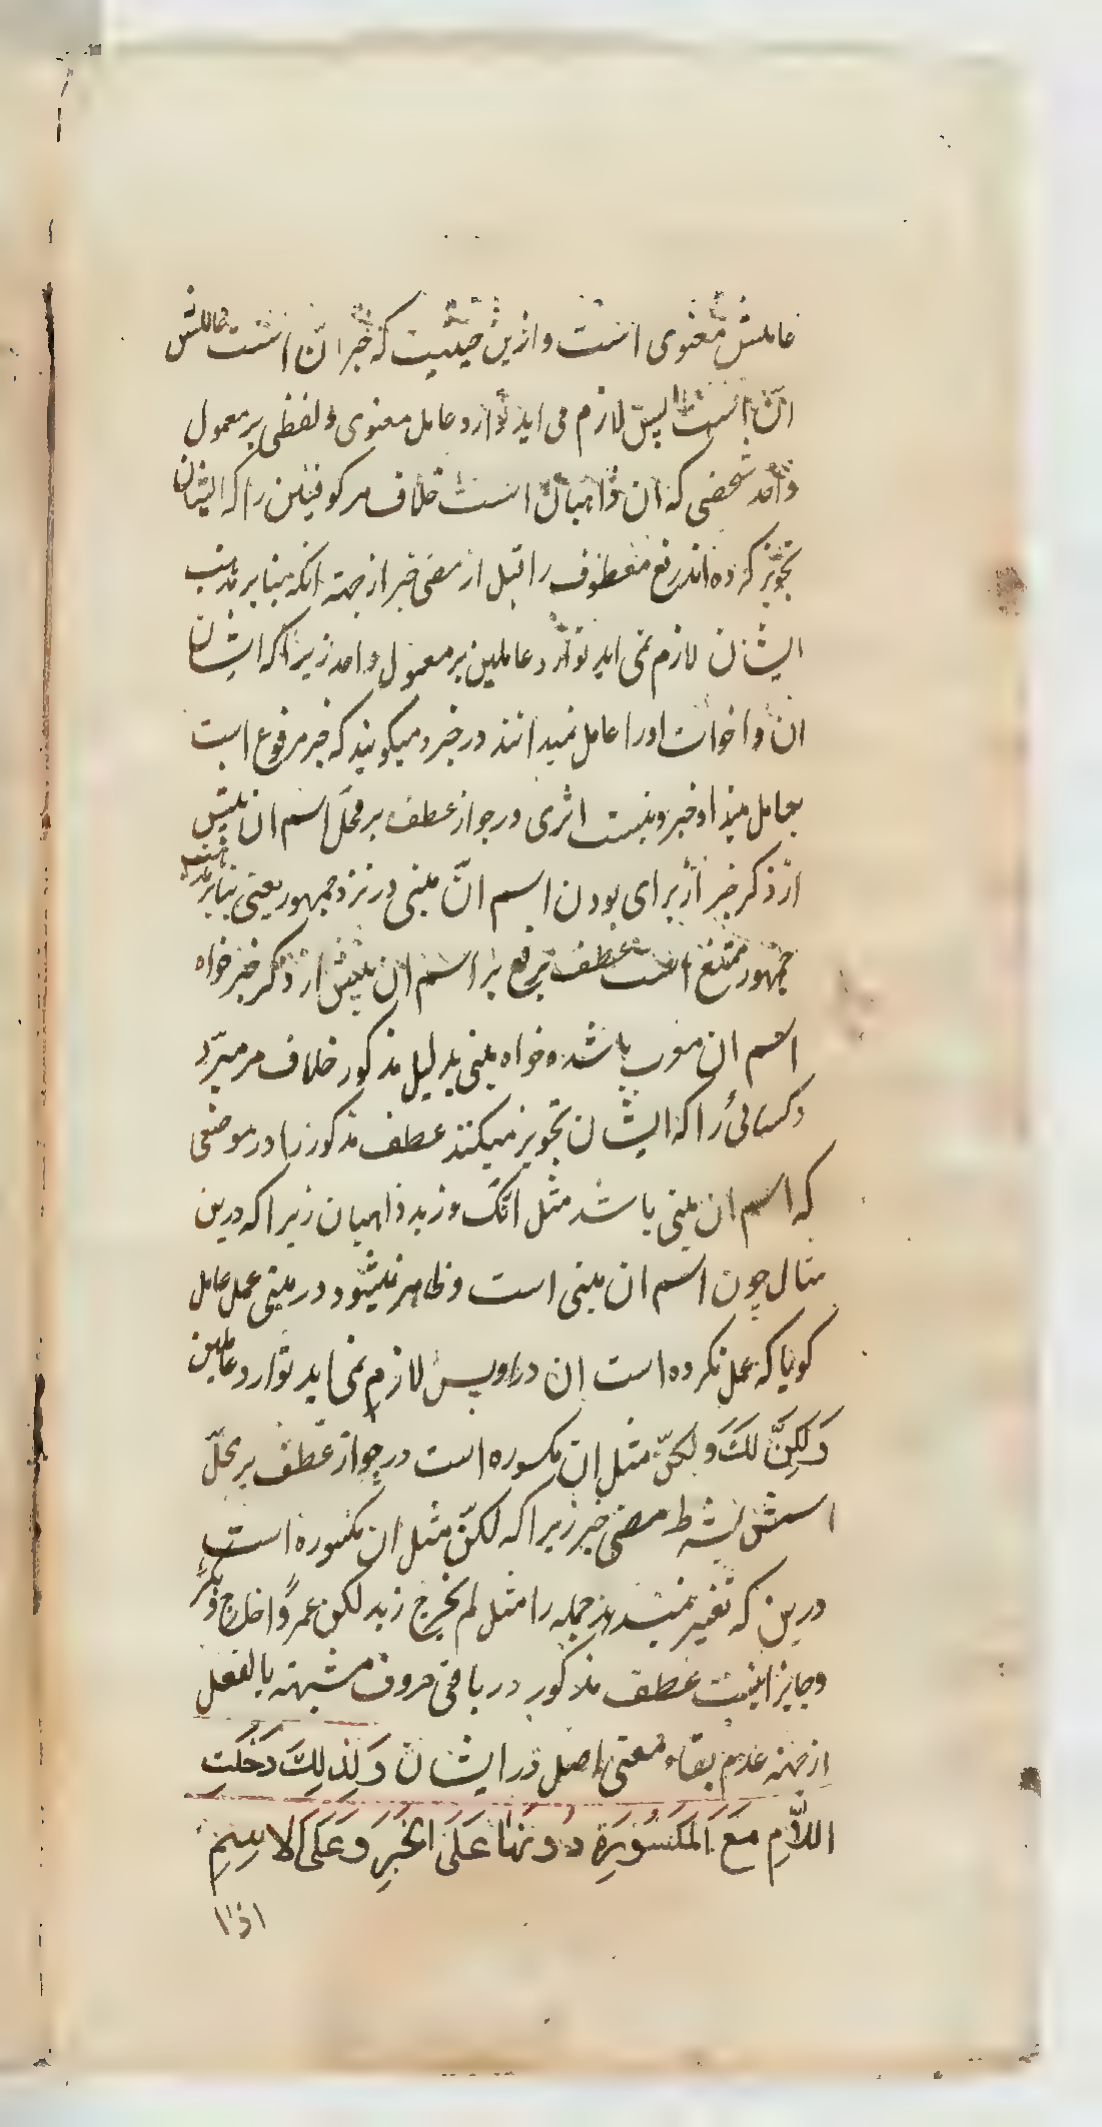 عاملش معنوی است و ازین حیثیت که خبر انّ است عاملش
انّ است پس لازم می اید توارد عامل معنوی و لفظی بر معمول
واحد شخصی که ان ذاهبان است خلاف مر کوفیین را که ایشان
تجویز کرده اند رفع معطوف را قبل از مضی خبر از جهة انکه بنابر مذهب
ایشان لازم نمی اید توارد عاملین بر معمول واحد زیرا که ایشان
ان و اخوات او را عامل نمیدانند در خبر و میکویند که خبر مرفوع است
بعامل مبتدا و خبر و نیست اثری در جواز عطف بر محلّ اسم ان پیش
از ذکر خبر از برای بودن اسم انّ مبنی در نزد جمهور یعنی بنابر مذهب
جمهور ممتنع است عطف برفع بر اسم ان پیش از ذکر خبر خواه
اسم ان معرب باشد و خواه مبنی بدلیل مذکور خلاف مر مبرّد
و کسائی را که ایشان تجویز میکنند عطف مذکور را در موضعی
که اسم ان مبنی باشد مثل انّک و زید ذاهبان زیرا که درین
مثال چون اسم ان مبنی است و ظاهر نمیشود در مبنی عمل عامل
کویا که عمل نکرده است ان در او پس لازم نمی اید توارد عاملین
وَلٰکِنَّ لِذَلِكَ و لکنّ مثل انّ مکسوره است در جواز عطف بر محلّ
اسمش بشرط مضی خبر زیرا که لکنّ مثل ان مکسوره است
درین که تغیر نمیدهد جمله را مثل لم یخرج زید لکن عمرًا خارج و بکر
و جایز نیست عطف مذکور در باقی حروف مشبهه بالفعل
از جهة عدم بقاء معنی اصل در ایشان وَلِذٰلِكَ دَخَلَتِ
اللَّامُ مَعَ الْمَکسُوْرَةِ دُوْنَهَا عَلَی الخَبَرِ وَعَلَی الاسِمِ
اذا